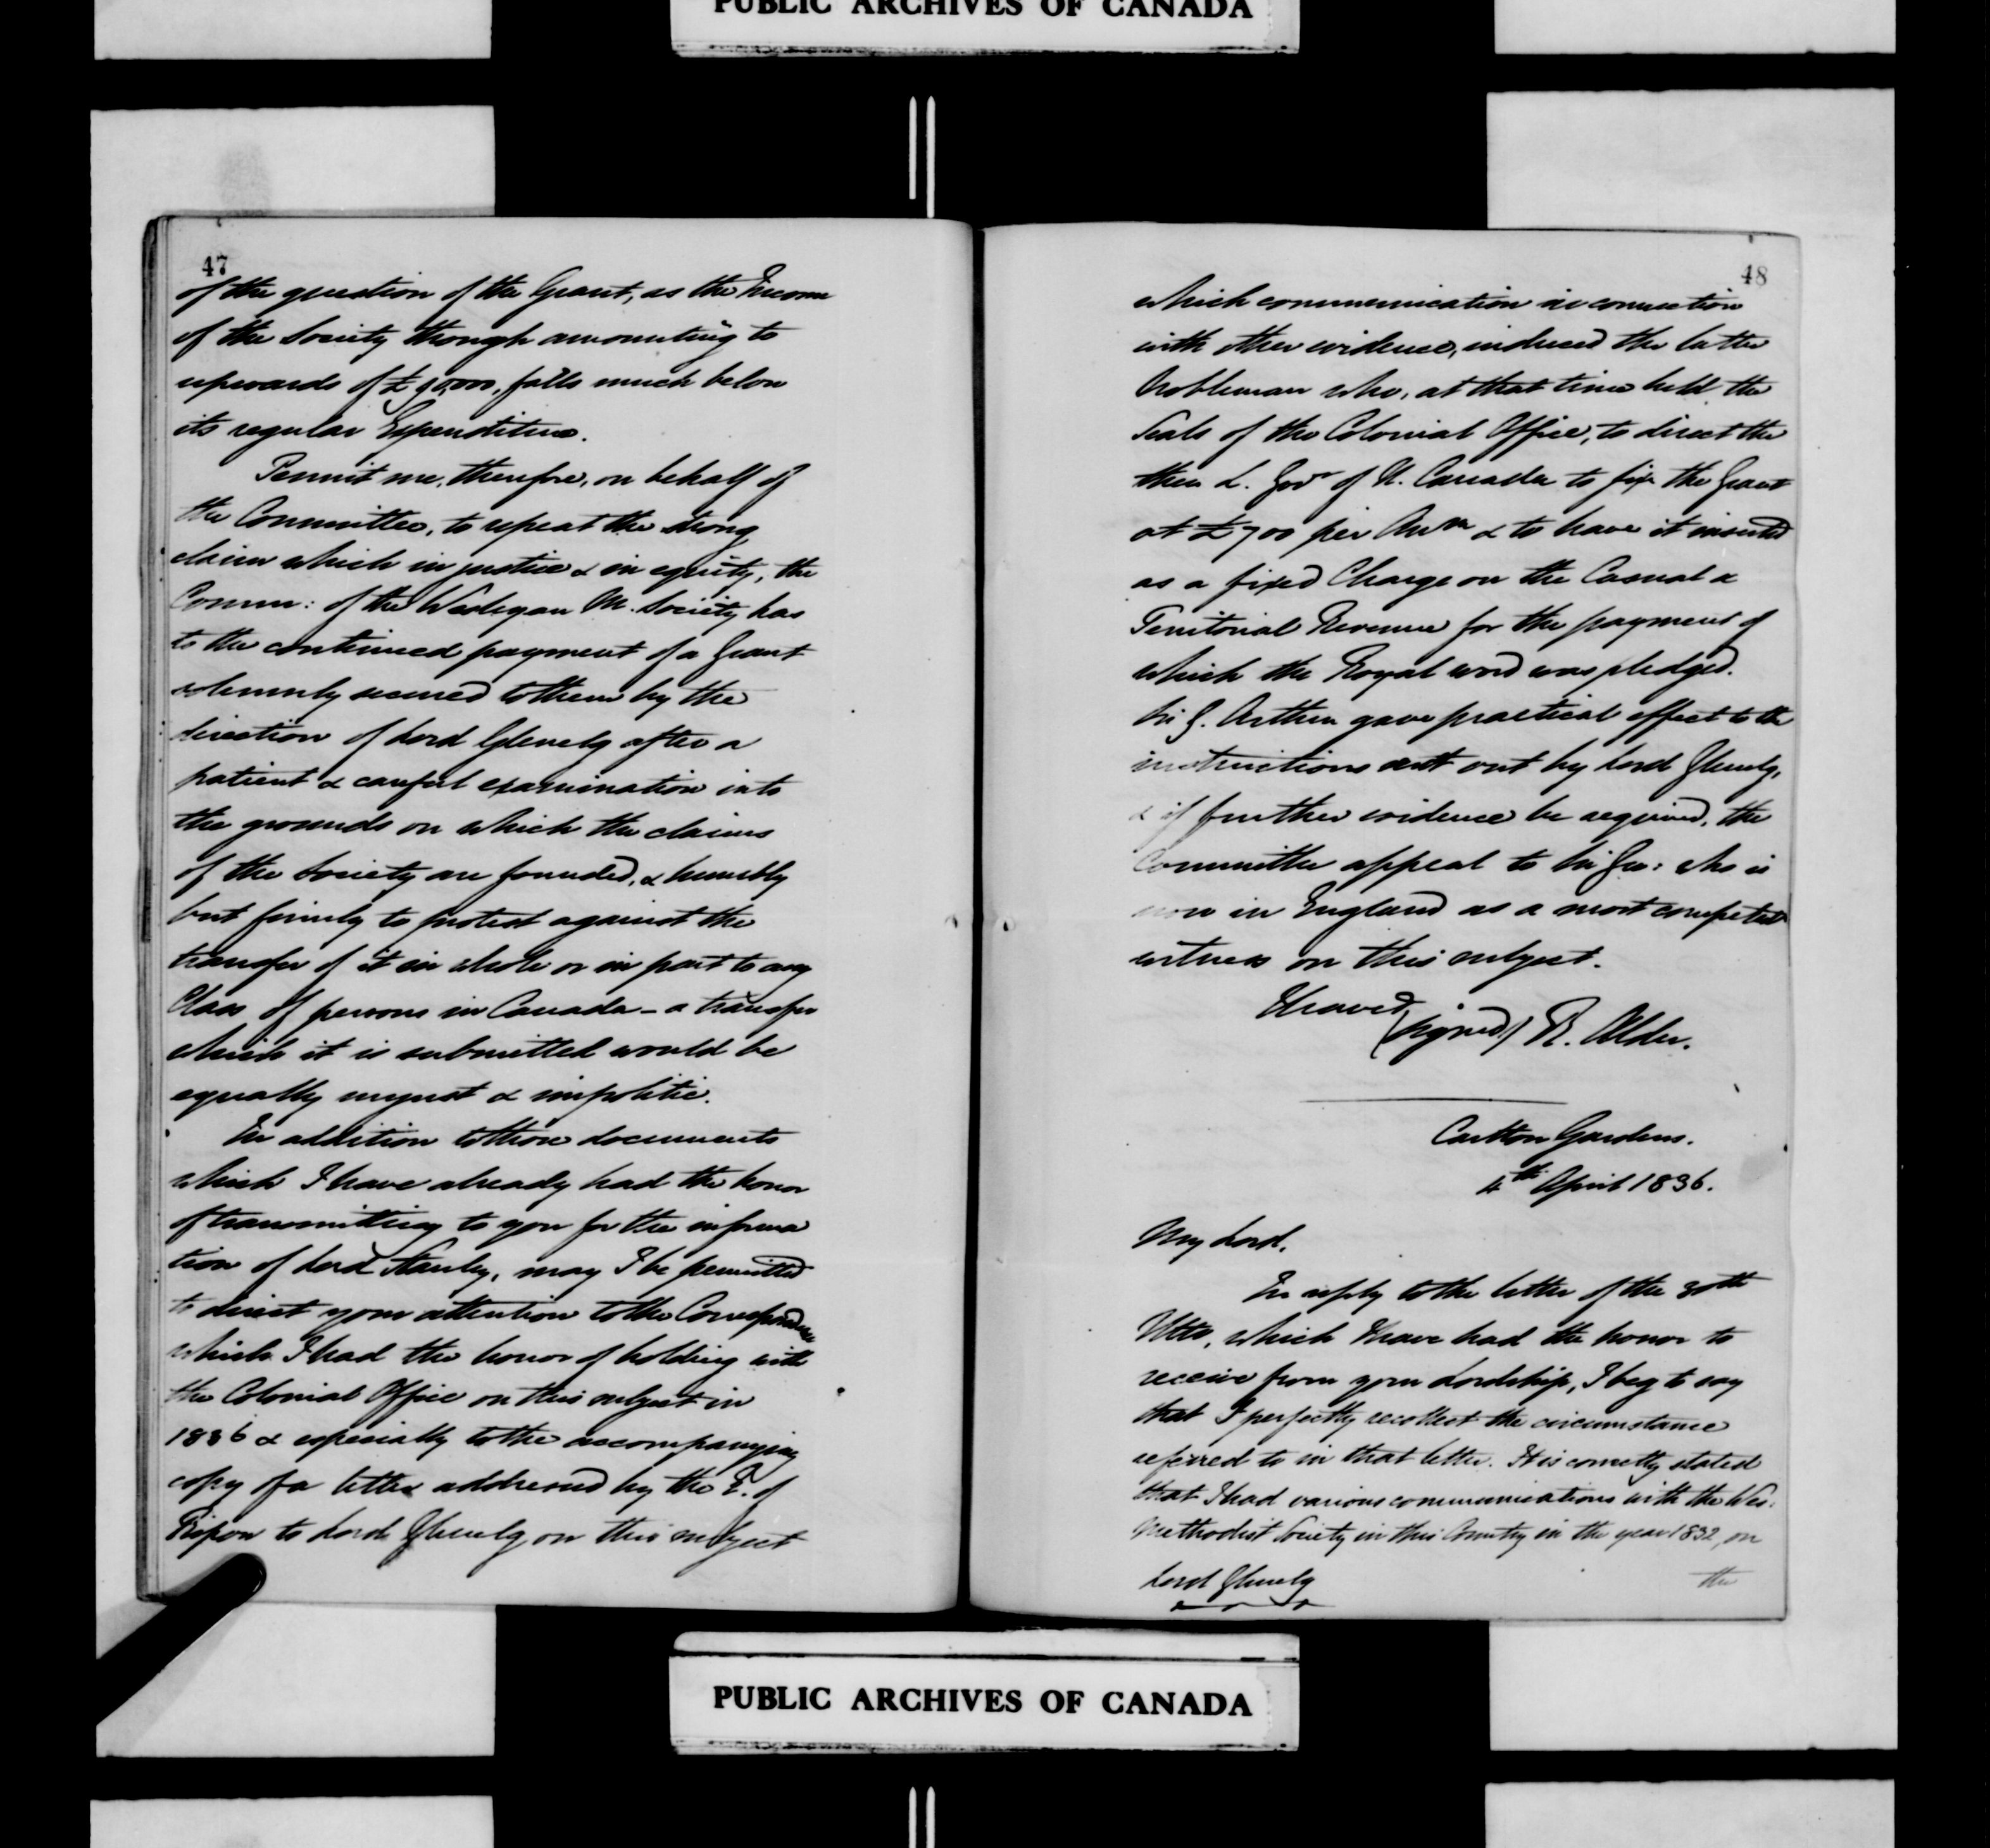 PUBLIC ARCHIVES OF CANADA
47
of the question of the Grant, as the Income
of the Society though amounting to
upwards of £90,000, falls much below
its regular Expenditure.
Permit me, therefore, on behalf of
the Committee, to repeat the strong
claim which in justice & in equity, the
Comm: of the Wesleyan M. Society has
to the continued payment of a Grant
solemnly secured to them by the
direction of Lord Glenelg after a
patient & careful examination into
the grounds on which the claims
of the Society are founded, & humbly
but firmly to protest against the
transfer of it in whole or in part to any
Class of persons in Canada - a transfer
which it is submitted would be
equally unjust & impolitic.
In addition to those documents
which I have already had the honor
of transmitting to you for the informa
tion of Lord Stanley, may I be permitted
to direct your attention to the Correspondence
which I had the honor of holding with
the Colonial Office on this subject in
1836 & especially to the accompanying
copy of a letter addressed by the E. of
Ripon to Lord Glenelg on this subject
48
which communication in connection
with other evidence, induced the latter
Nobleman who, at that time held the
Seals of the Colonial Office, to direct the
then L. Govr of U. Canada to fix the Grant
at £700 per Annm & to have it inserted
as a fixed Charge on the Casual &
Territorial Revenue for the payment of
which the Royal word was pledged.
Sir G. Arthur gave practical effect to the
instructions sent out by Lord Glenelg,
& if further evidence be required, the
Committee appeal to Sir Geo: who is
now in England as a most competent
witness on this subject.
I have &c
(signed) R. Alder.
Carlton Gardens.
4th April 1836.
My Lord,
In reply to the letter of the 30th
Ulto, which I have had the honor to
receive from your Lordship, I beg to say
that I perfectly recollect the circumstance
referred to in that letter. It is correctly stated
that I had various communications with the Wes:
Methodist Society in this Country in the year 1832, on
Lord Glenelg
the
PUBLIC ARCHIVES OF CANADA